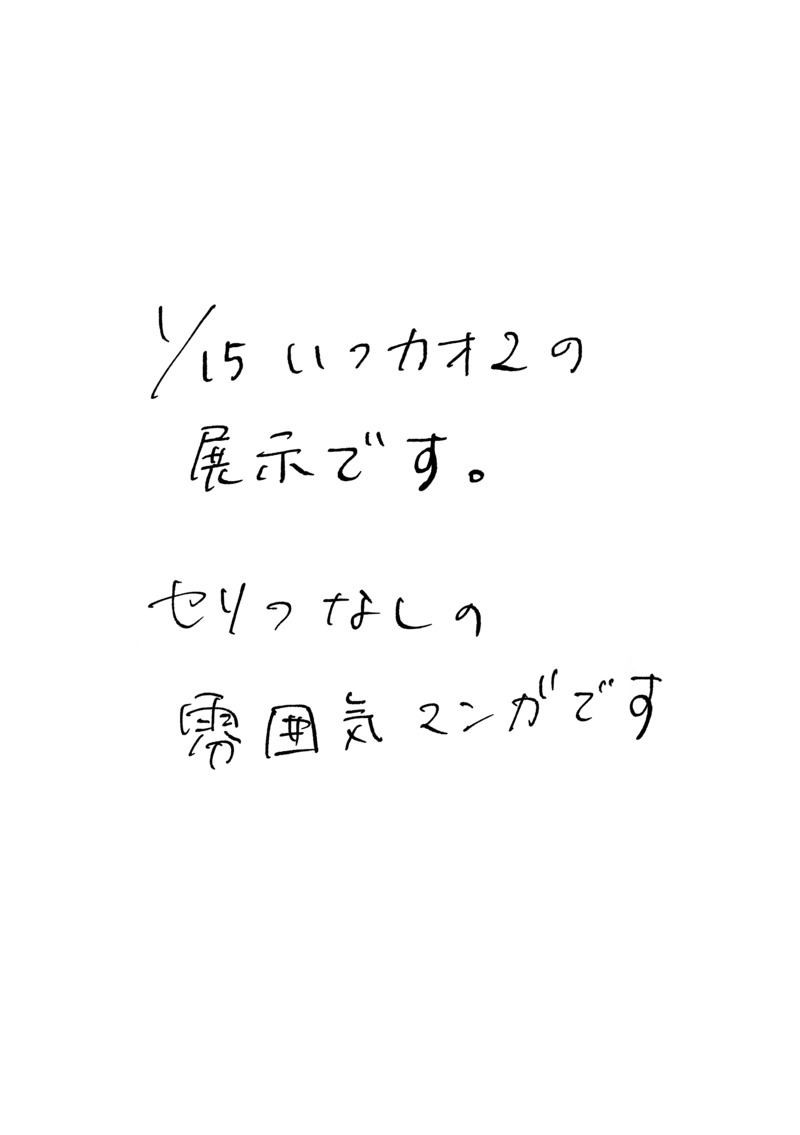 1/15 いつカオ2の
展示です。
セリフなしの
雰囲気マンガです